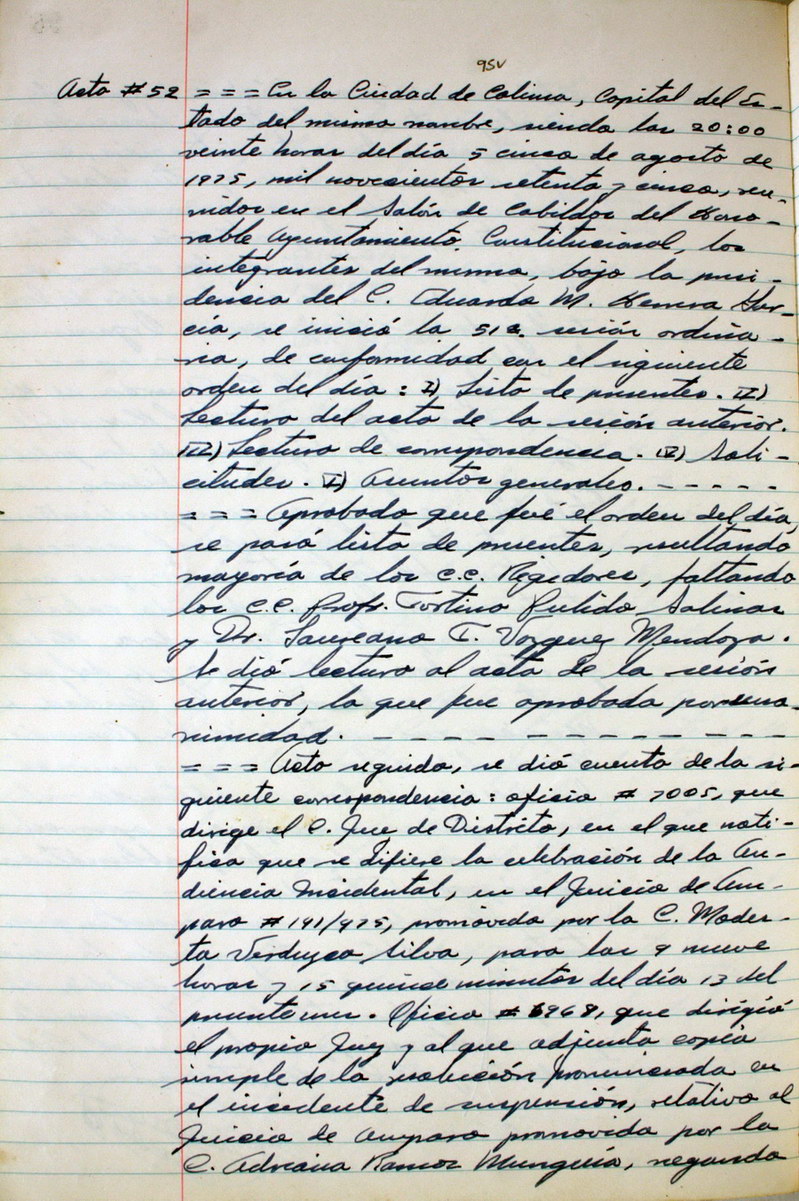 95v
Acta # 52 = = = En la Ciudad de Colima, Capital del Es-
tado del mismo nombre, siendo las 20:00
veinte horas del día 5 cinco de agosto de
1975, mil novecientos setenta y cinco, reu-
nidos en el Salón de Cabildos del Hono-
rable Ayuntamiento Constitucional, los
integrantes del mismo, bajo la presi-
dencia del C. Eduardo M. Herrera Gar-
cía, se inició la 51a. sesión ordina-
ria, de conformidad con el siguiente
orden del día: I) Lista de presentes. II)
Lectura del acta de la sesión anterior.
III) Lectura de correspondencia. IV) Soli-
citudes. V) Asuntos generales. - - - - -
= = = Aprobado que fué el orden del día,
se pasó lista de presentes, resultando
mayoría de los C.C. Regidores, faltando
los C.C. Profr. Fortino Pulido Salinas
y Dr. Laureano T. Vázquez Mendoza.
Se dió lectura al acta de la sesión
anterior, la que fue aprobada por una-
nimidad. - - - - - - - - - - - -
= = = Acto seguido, se dió cuenta de la si-
guiente correspondencia: oficio # 7005, que
dirige el C. Juez de Distrito, en el que noti-
fica que se difiere la celebración de la Au-
diencia Incidental, en el Juicio de Am-
paro # 191/975, promovido por la C. Modes-
ta Verduzco Silva, para las 9 nueve
horas y 15 quince minutos del día 13 del
presente mes. Oficio # 6968, que dirigió
el propio Juez y al que adjunta copia
simple de la resolución pronunciada en
el incidente de suspensión, relativo al
Juicio de Amparo promovido por la
C. Adriana Ramos Munguía, negando